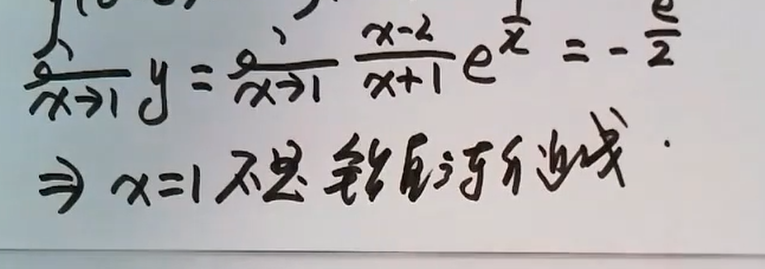 lim x→1 y = lim x→1 (x-2)/(x+1) e^(1/x) = -e/2
⇒ x=1 不是 铅直渐近线.